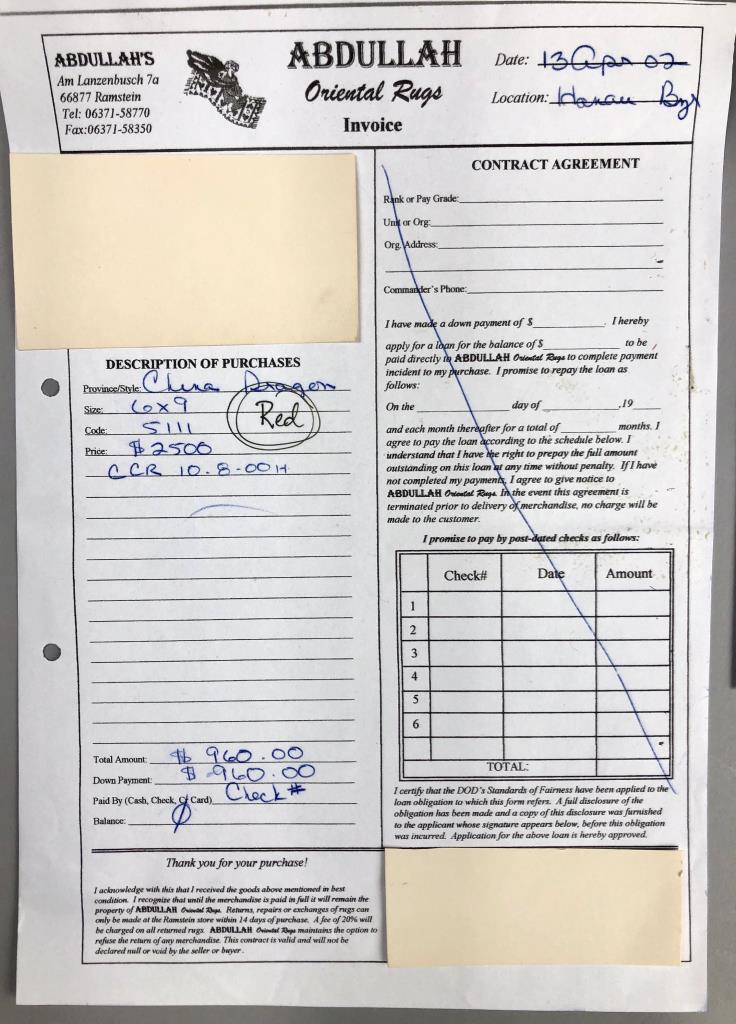 ABDULLAH'S
Am Lanzenbusch 7a
66877 Ramstein
Tel: 06371-58770
Fax:06371-58350
ABDULLAH
Oriental Rugs
Invoice
Date: 13 Apr 02
Location: Hanau
DESCRIPTION OF PURCHASES
Province/Style: China Dragon
Size: 6x9
Red
Code: 5111
Price: $2500
CCR 10.8.00H
Total Amount: $ 960.00
Down Payment: $ 960.00
Paid By (Cash, Check, Card) Check #
Balance: 0
Thank you for your purchase!
I acknowledge with this that I received the goods above mentioned in best
condition. I recognize that until the merchandise is paid in full it will remain the
property of ABDULLAH Oriental Rugs. Returns, repairs or exchanges of rugs can
only be made at the Ramstein store within 14 days of purchase. A fee of 20% will
be charged on all returned rugs. ABDULLAH Oriental Rugs maintains the option to
refuse the return of any merchandise. This contract is valid and will not be
declared null or void by the seller or buyer.
CONTRACT AGREEMENT
Rank or Pay Grade:
Unit or Org:
Org. Address:
Commander's Phone:
I have made a down payment of $ . I hereby
apply for a loan for the balance of $ to be
paid directly to ABDULLAH Oriental Rugs to complete payment
incident to my purchase. I promise to repay the loan as
follows:
On the day of ,19
and each month thereafter for a total of months. I
agree to pay the loan according to the schedule below. I
understand that I have the right to prepay the full amount
outstanding on this loan at any time without penalty. If I have
not completed my payments, I agree to give notice to
ABDULLAH Oriental Rugs. In the event this agreement is
terminated prior to delivery of merchandise, no charge will be
made to the customer.
I promise to pay by post-dated checks as follows:
Check# Date Amount
1
2
3
4
5
6
TOTAL:
I certify that the DOD's Standards of Fairness have been applied to the
loan obligation to which this form refers. A full disclosure of the
obligation has been made and a copy of this disclosure was furnished
to the applicant whose signature appears below, before this obligation
was incurred. Application for the above loan is hereby approved.